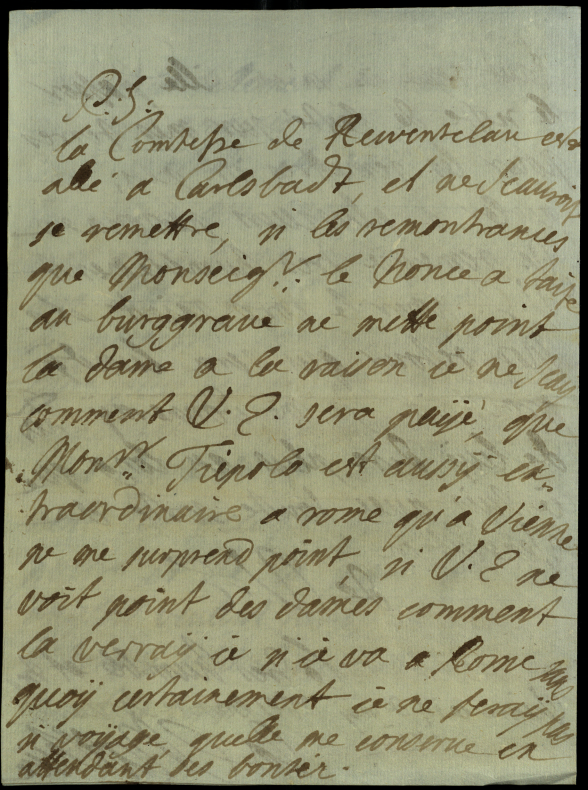 P. S.
la Comtesse de Reventelau est
allé a Carlsbadt, et ne scauroit
se remettre, si les remontrances
que Monseigr. le Nonce a faite
au burggrave ne mette point
la dame a la raison ie ne scay
comment V. E. sera payé, que
Monsr. Tiepolo est aussy ex-
traordinaire a rome qu'a Vienne
ne me surprend point, si V. E ne
voit point des dames comment
la verray ie si ie va a Rome
quoy certainement ie ne feray pas
si voyage, quelle me conserve en
attendant ses bontér.